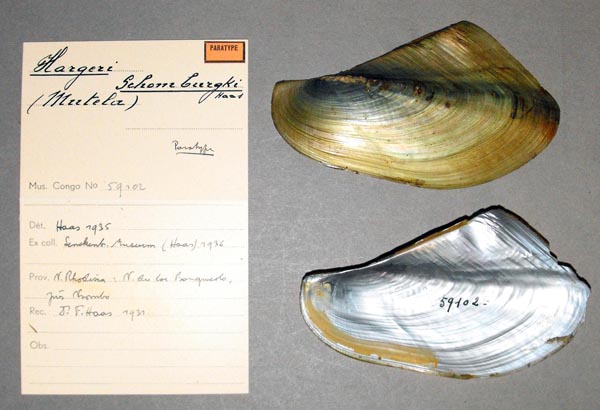 PARATYPE
Hargeri
Schomburgki
Haas
(Mutela)
Paratype
Mus. Congo No 59102
Dét. Haas 1936
Ex coll. Senckenb. Museum (Haas) 1936
Prov. N. Rhodesia : N. du lac Bangweolo,
près
Rec. F. Haas 1931
Obs.
59102